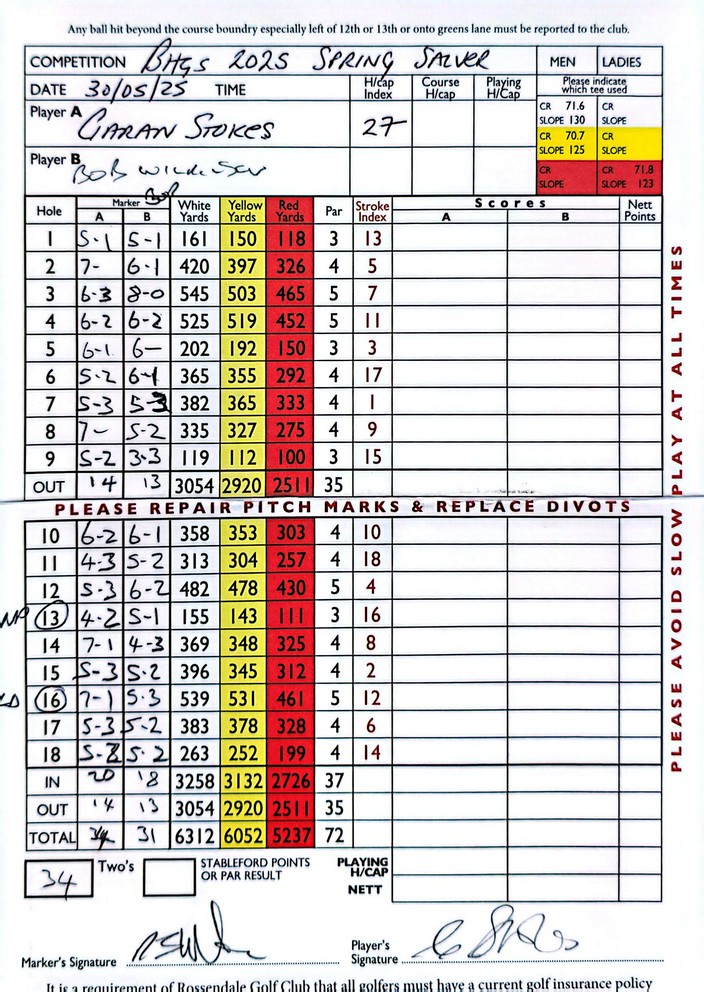 Any ball hit beyond the course boundry especially left of 12th or 13th or onto greens lane must be reported to the club.
COMPETITION BHGS 2025 SPRING SALVER MEN LADIES
DATE 30/05/25 TIME H/cap Index Course H/cap Playing H/Cap Please indicate which tee used
Player A GARAN STOKES 27 CR 71.6 SLOPE 130 CR SLOPE
CR 70.7 SLOPE 125 CR SLOPE
Player B BOB CR SLOPE CR 71.8 SLOPE 123
Hole Marker Bob A B White Yards Yellow Yards Red Yards Par Stroke Index Scores A B Nett Points
1 5-1 5-1 161 150 118 3 13
2 7- 6-1 420 397 326 4 5
3 6-3 8-0 545 503 465 5 7
4 6-2 6-2 525 519 452 5 11
5 6-1 6- 202 192 150 3 3
6 5-2 6-1 365 355 292 4 17
7 5-3 5-3 382 365 333 4 1
8 7- 5-2 335 327 275 4 9
9 5-2 3-3 119 112 100 3 15
OUT 14 13 3054 2920 2511 35
PLEASE REPAIR PITCH MARKS & REPLACE DIVOTS
10 6-2 6-1 358 353 303 4 10
11 4-3 5-2 313 304 257 4 18
12 5-3 6-2 482 478 430 5 4
NP 13 4-2 5-1 155 143 111 3 16
14 7-1 4-3 369 348 325 4 8
15 5-3 5-2 396 345 312 4 2
16 7-1 5-3 539 531 461 5 12
17 5-3 5-2 383 378 328 4 6
18 5-2 5-2 263 252 199 4 14
IN 20 18 3258 3132 2726 37
OUT 14 13 3054 2920 2511 35
TOTAL 34 31 6312 6052 5237 72
34 Two's STABLEFORD POINTS OR PAR RESULT PLAYING H/CAP
NETT
Marker's Signature Player's Signature
It is a requirement of Rossendale Golf Club that all golfers must have a current golf insurance policy
PLEASE AVOID SLOW PLAY AT ALL TIMES